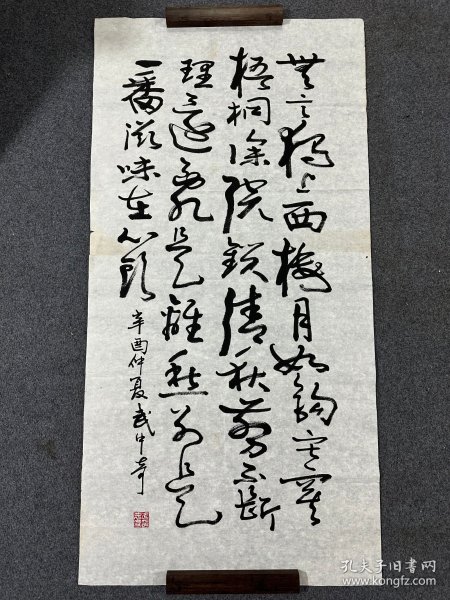 無言獨上西樓月如鈎寂寞
梧桐深院鎖清秋剪不斷
理還亂是離愁別是
一番滋味在心頭
辛酉仲夏武中奇
孔夫子旧书网
www.kongfz.com